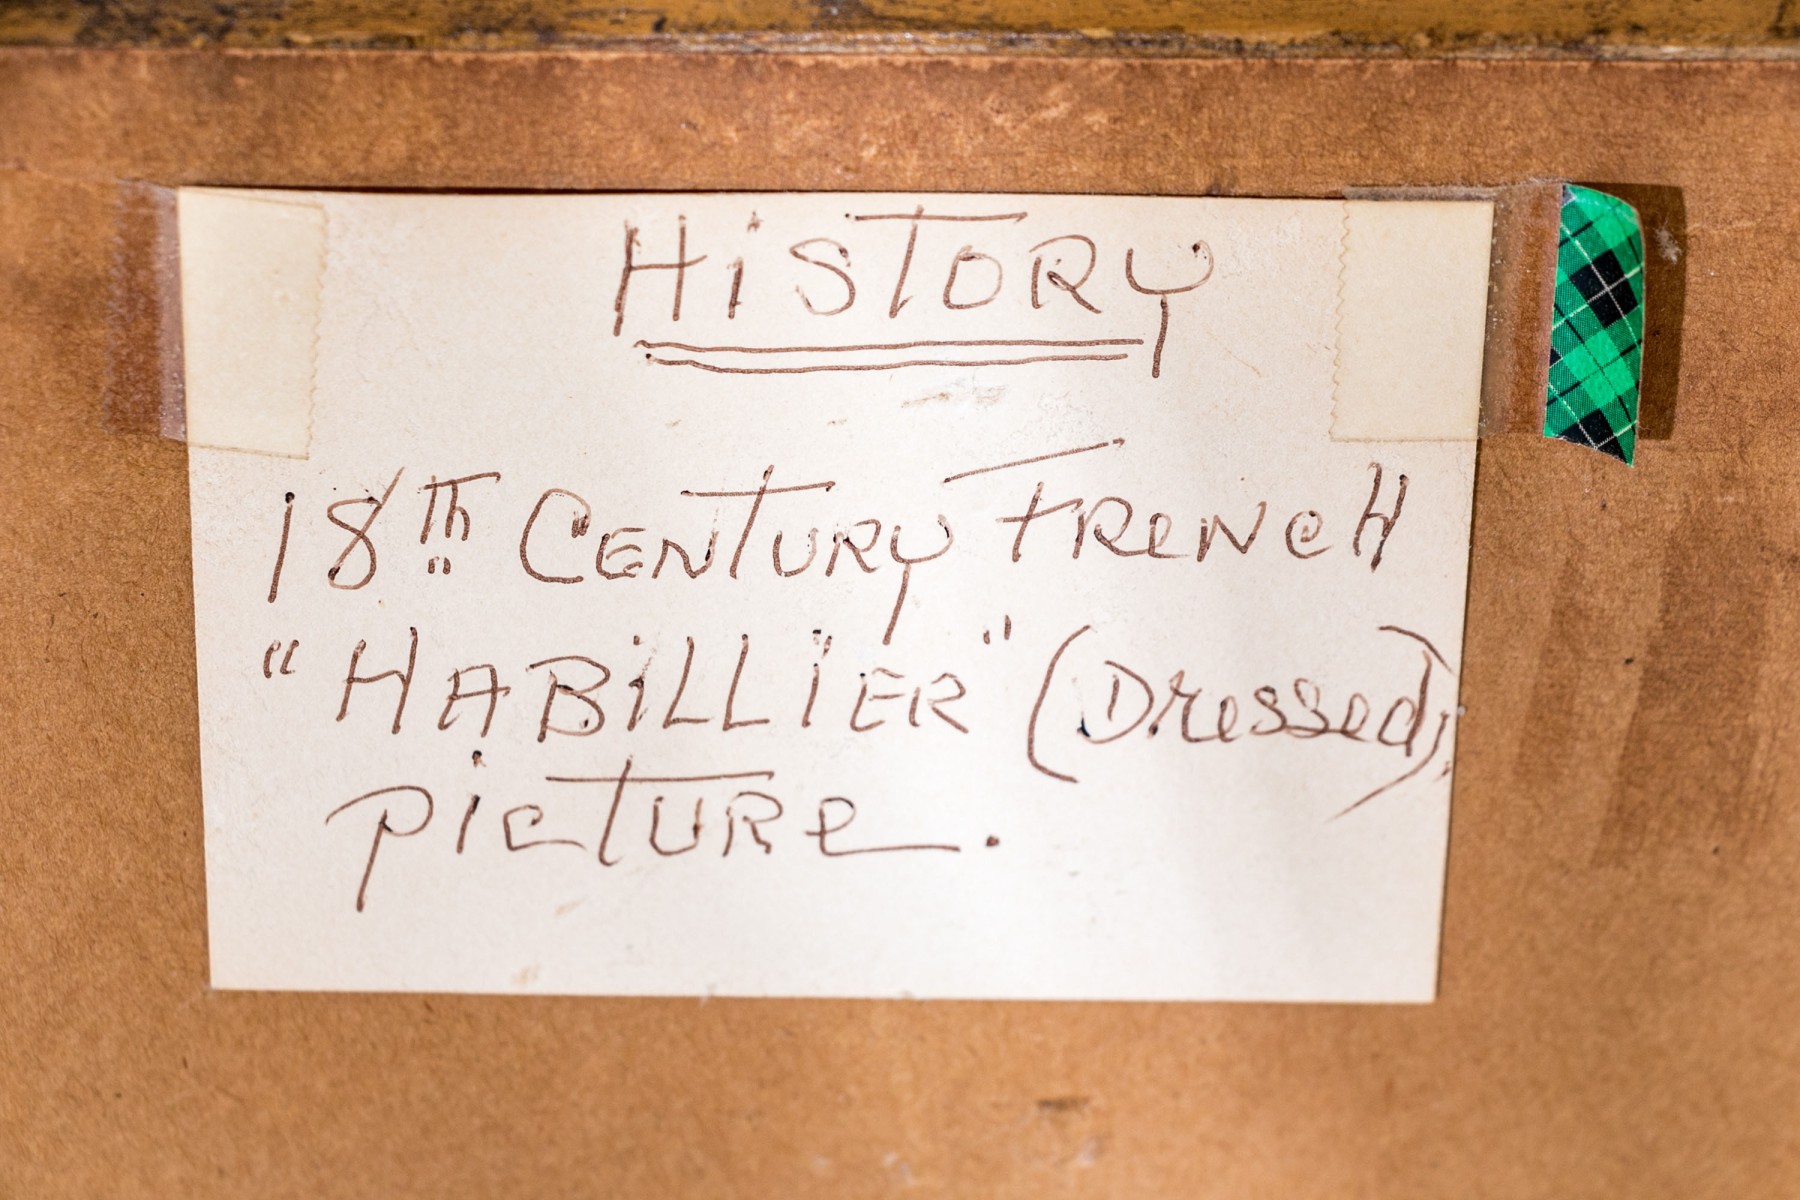 HiSTORY
18TH CENTURY FRENCH
"HABiLLiER" (Dressed)
picTURe.